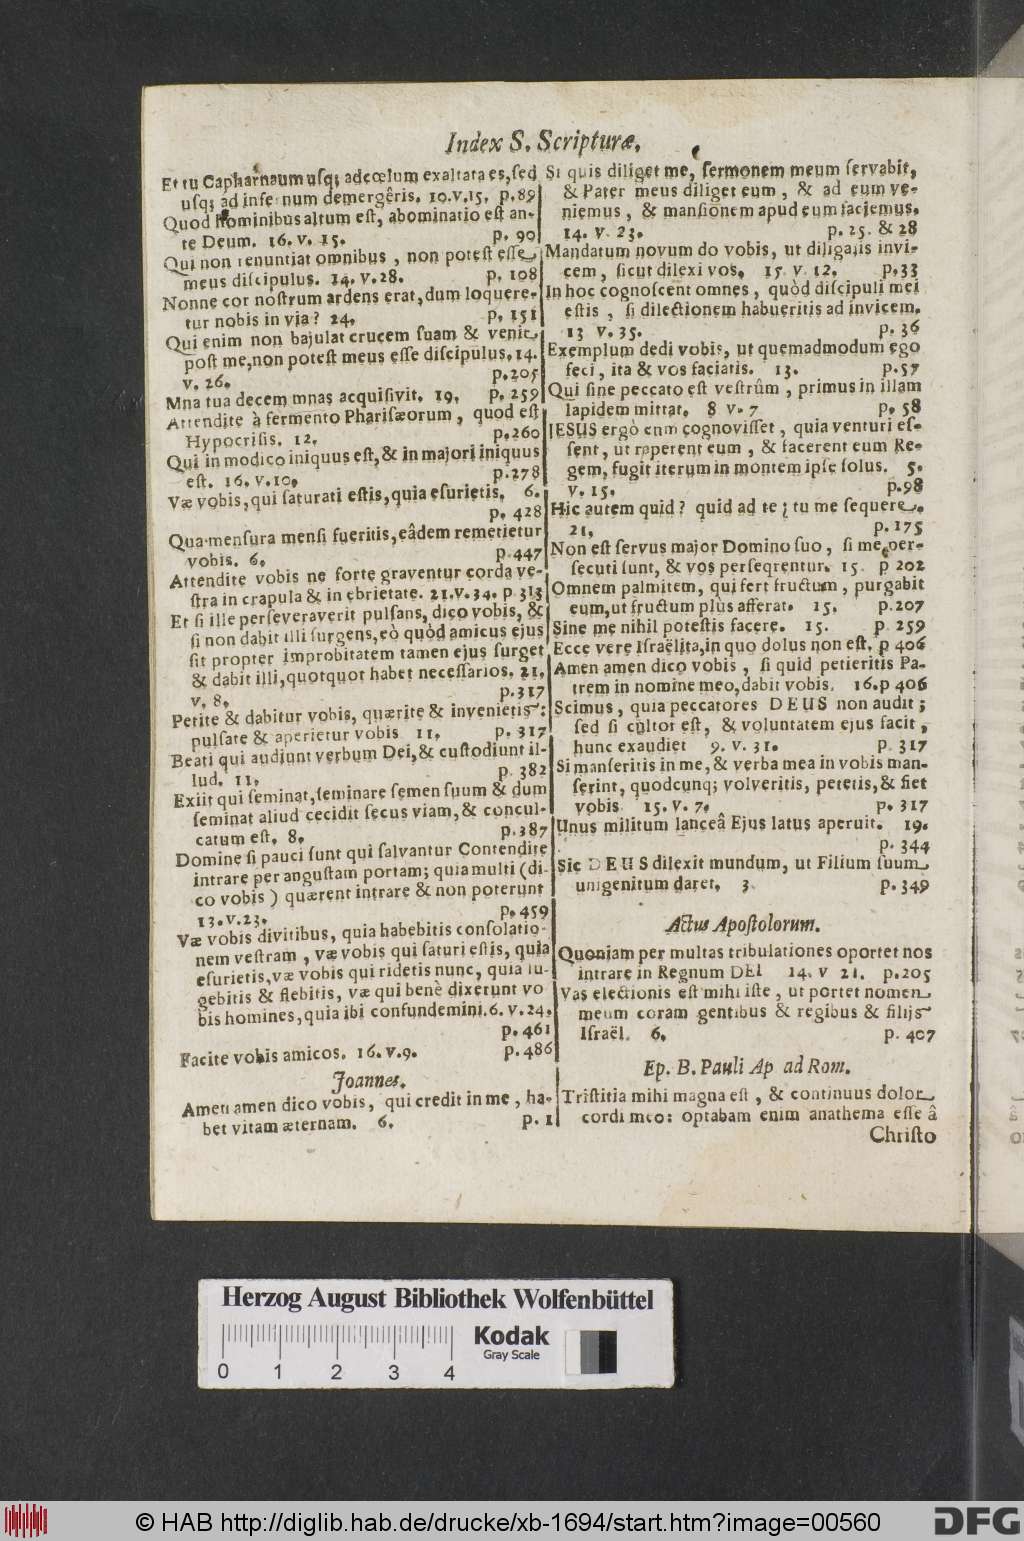 Index S. Scripturæ.
Et tu Capharnaum usq; ad cœlum exaltata es, sed
usq; ad infernum demergêris. 10.v.15. p.89
Quod hominibus altum est, abominatio est an-
te Deum. 16. v. 15. p. 90
Qui non renuntiat omnibus, non potest esse
meus discipulus. 14. v.28. p. 108
Nonne cor nostrum ardens erat, dum loquere-
tur nobis in via? 24. p. 151
Qui enim non bajulat crucem suam & venit
post me, non potest meus esse discipulus. 14.
v. 26. p.205
Mna tua decem mnas acquisivit. 19. p. 259
Attendite à fermento Pharisæorum, quod est
Hypocrisis. 12. p.260
Qui in modico iniquus est, & in majori iniquus
est. 16. v.10. p.278
Væ vobis, qui saturati estis, quia esurietis. 6.
p. 428
Qua mensura mensi fueritis, eâdem remetietur
vobis. 6. p.447
Attendite vobis ne forte graventur corda ve-
stra in crapula & in ebrietate. 21.v.34. p 313
Et si ille perseveraverit pulsans, dico vobis, &
si non dabit illi surgens, eò quòd amicus ejus
sit propter improbitatem tamen ejus surget
& dabit illi, quotquot habet necessarios. 21.
v. 8. p.317
Petite & dabitur vobis, quærite & invenietis:
pulsate & aperietur vobis 11. p. 317
Beati qui audiunt verbum Dei, & custodiunt il-
lud. 11. p. 382
Exiit qui seminat, seminare semen suum & dum
seminat aliud cecidit secus viam, & concul-
catum est. 8. p.387
Domine si pauci sunt qui salvantur Contendite
intrare per angustam portam; quia multi (di-
co vobis) quærent intrare & non poterunt
13.v.23. p.459
Væ vobis divitibus, quia habebitis consolatio-
nem vestram, væ vobis qui saturi estis, quia
esurietis, væ vobis qui ridetis nunc, quia lu-
gebitis & flebitis, væ qui benè dixerunt vo
bis homines, quia ibi confundemini. 6. v.24.
p.461
Facite vobis amicos. 16.v.9. p.486
Joannes.
Amen amen dico vobis, qui credit in me, ha-
bet vitam æternam. 6. p. 1
Si quis diliget me, sermonem meum servabit,
& Pater meus diliget eum, & ad eum ve-
niemus, & mansionem apud eum faciemus.
14. v. 23. p. 25. & 28
Mandatum novum do vobis, ut diligatis invi-
cem, sicut dilexi vos. 15 v. 12. p.33
In hoc cognoscent omnes, quòd discipuli mei
estis, si dilectionem habueritis ad invicem.
13 v. 35. p. 36
Exemplum dedi vobis, ut quemadmodum ego
feci, ita & vos faciatis. 13. p.57
Qui sine peccato est vestrûm, primus in illam
lapidem mittat. 8 v. 7 p. 58
IESUS ergò cum cognovisset, quia venturi es-
sent, ut raperent eum, & facerent eum Re-
gem, fugit iterum in montem ipse solus. 5.
v. 15. p.98
Hic autem quid? quid ad te; tu me sequere.
21. p. 175
Non est servus major Domino suo, si me per-
secuti sunt, & vos persequentur. 15. p 202
Omnem palmitem, qui fert fructum, purgabit
eum, ut fructum plùs afferat. 15. p.207
Sine me nihil potestis facere. 15. p 259
Ecce vere Israëlita, in quo dolus non est. p 406
Amen amen dico vobis, si quid petieritis Pa-
trem in nomine meo, dabit vobis. 16.p 406
Scimus, quia peccatores DEUS non audit;
sed si cultor est, & voluntatem ejus facit,
hunc exaudiet 9. v. 31. p. 317
Si manseritis in me, & verba mea in vobis man-
serint, quodcunq; volveritis, petetis, & fiet
vobis 15. v. 7. p. 317
Unus militum lanceâ Ejus latus aperuit. 19.
p. 344
Sic DEUS dilexit mundum, ut Filium suum
unigenitum daret. 3. p. 349
Actus Apostolorum.
Quoniam per multas tribulationes oportet nos
intrare in Regnum DEI 14. v 21. p.205
Vas electionis est mihi iste, ut portet nomen
meum coram gentibus & regibus & filijs
Israël. 6. p. 407
Ep. B. Pauli Ap ad Rom.
Tristitia mihi magna est, & continuus dolor
cordi meo: optabam enim anathema esse â
Christo
Herzog August Bibliothek Wolfenbüttel
Kodak
Gray Scale
0 1 2 3 4
© HAB http://diglib.hab.de/drucke/xb-1694/start.htm?image=00560
DFG